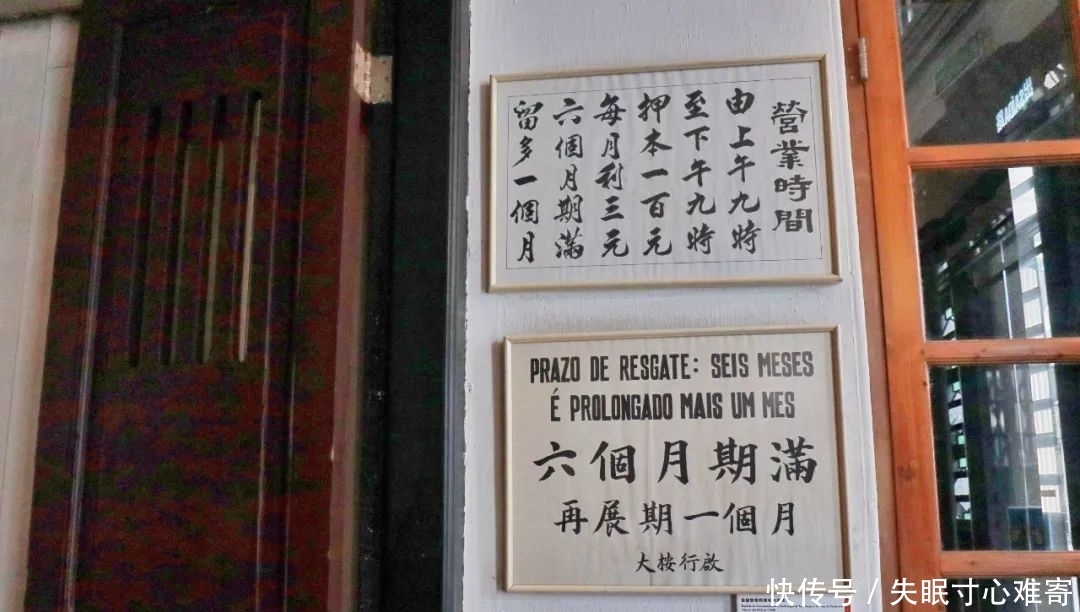 營業時間
由上午九時
至下午九時
押本一百元
每月利三元
六個月期滿
留多一個月
PRAZO DE RESGATE: SEIS MESES
É PROLONGADO MAIS UM MES
六個月期滿
再展期一個月
大按行啟
快传号 / 失眠寸心难寄